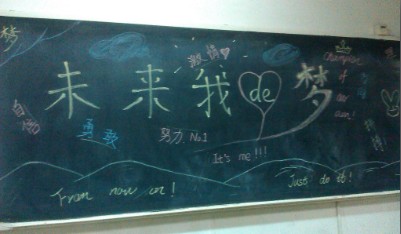 梦
激情
Champion
of
our
own!
未来我de梦
自信
勇敢
努力 No.1
It's me!!!
From now on!
Just do it!